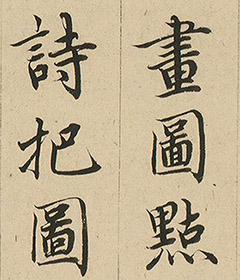 畫圖點
詩把圖